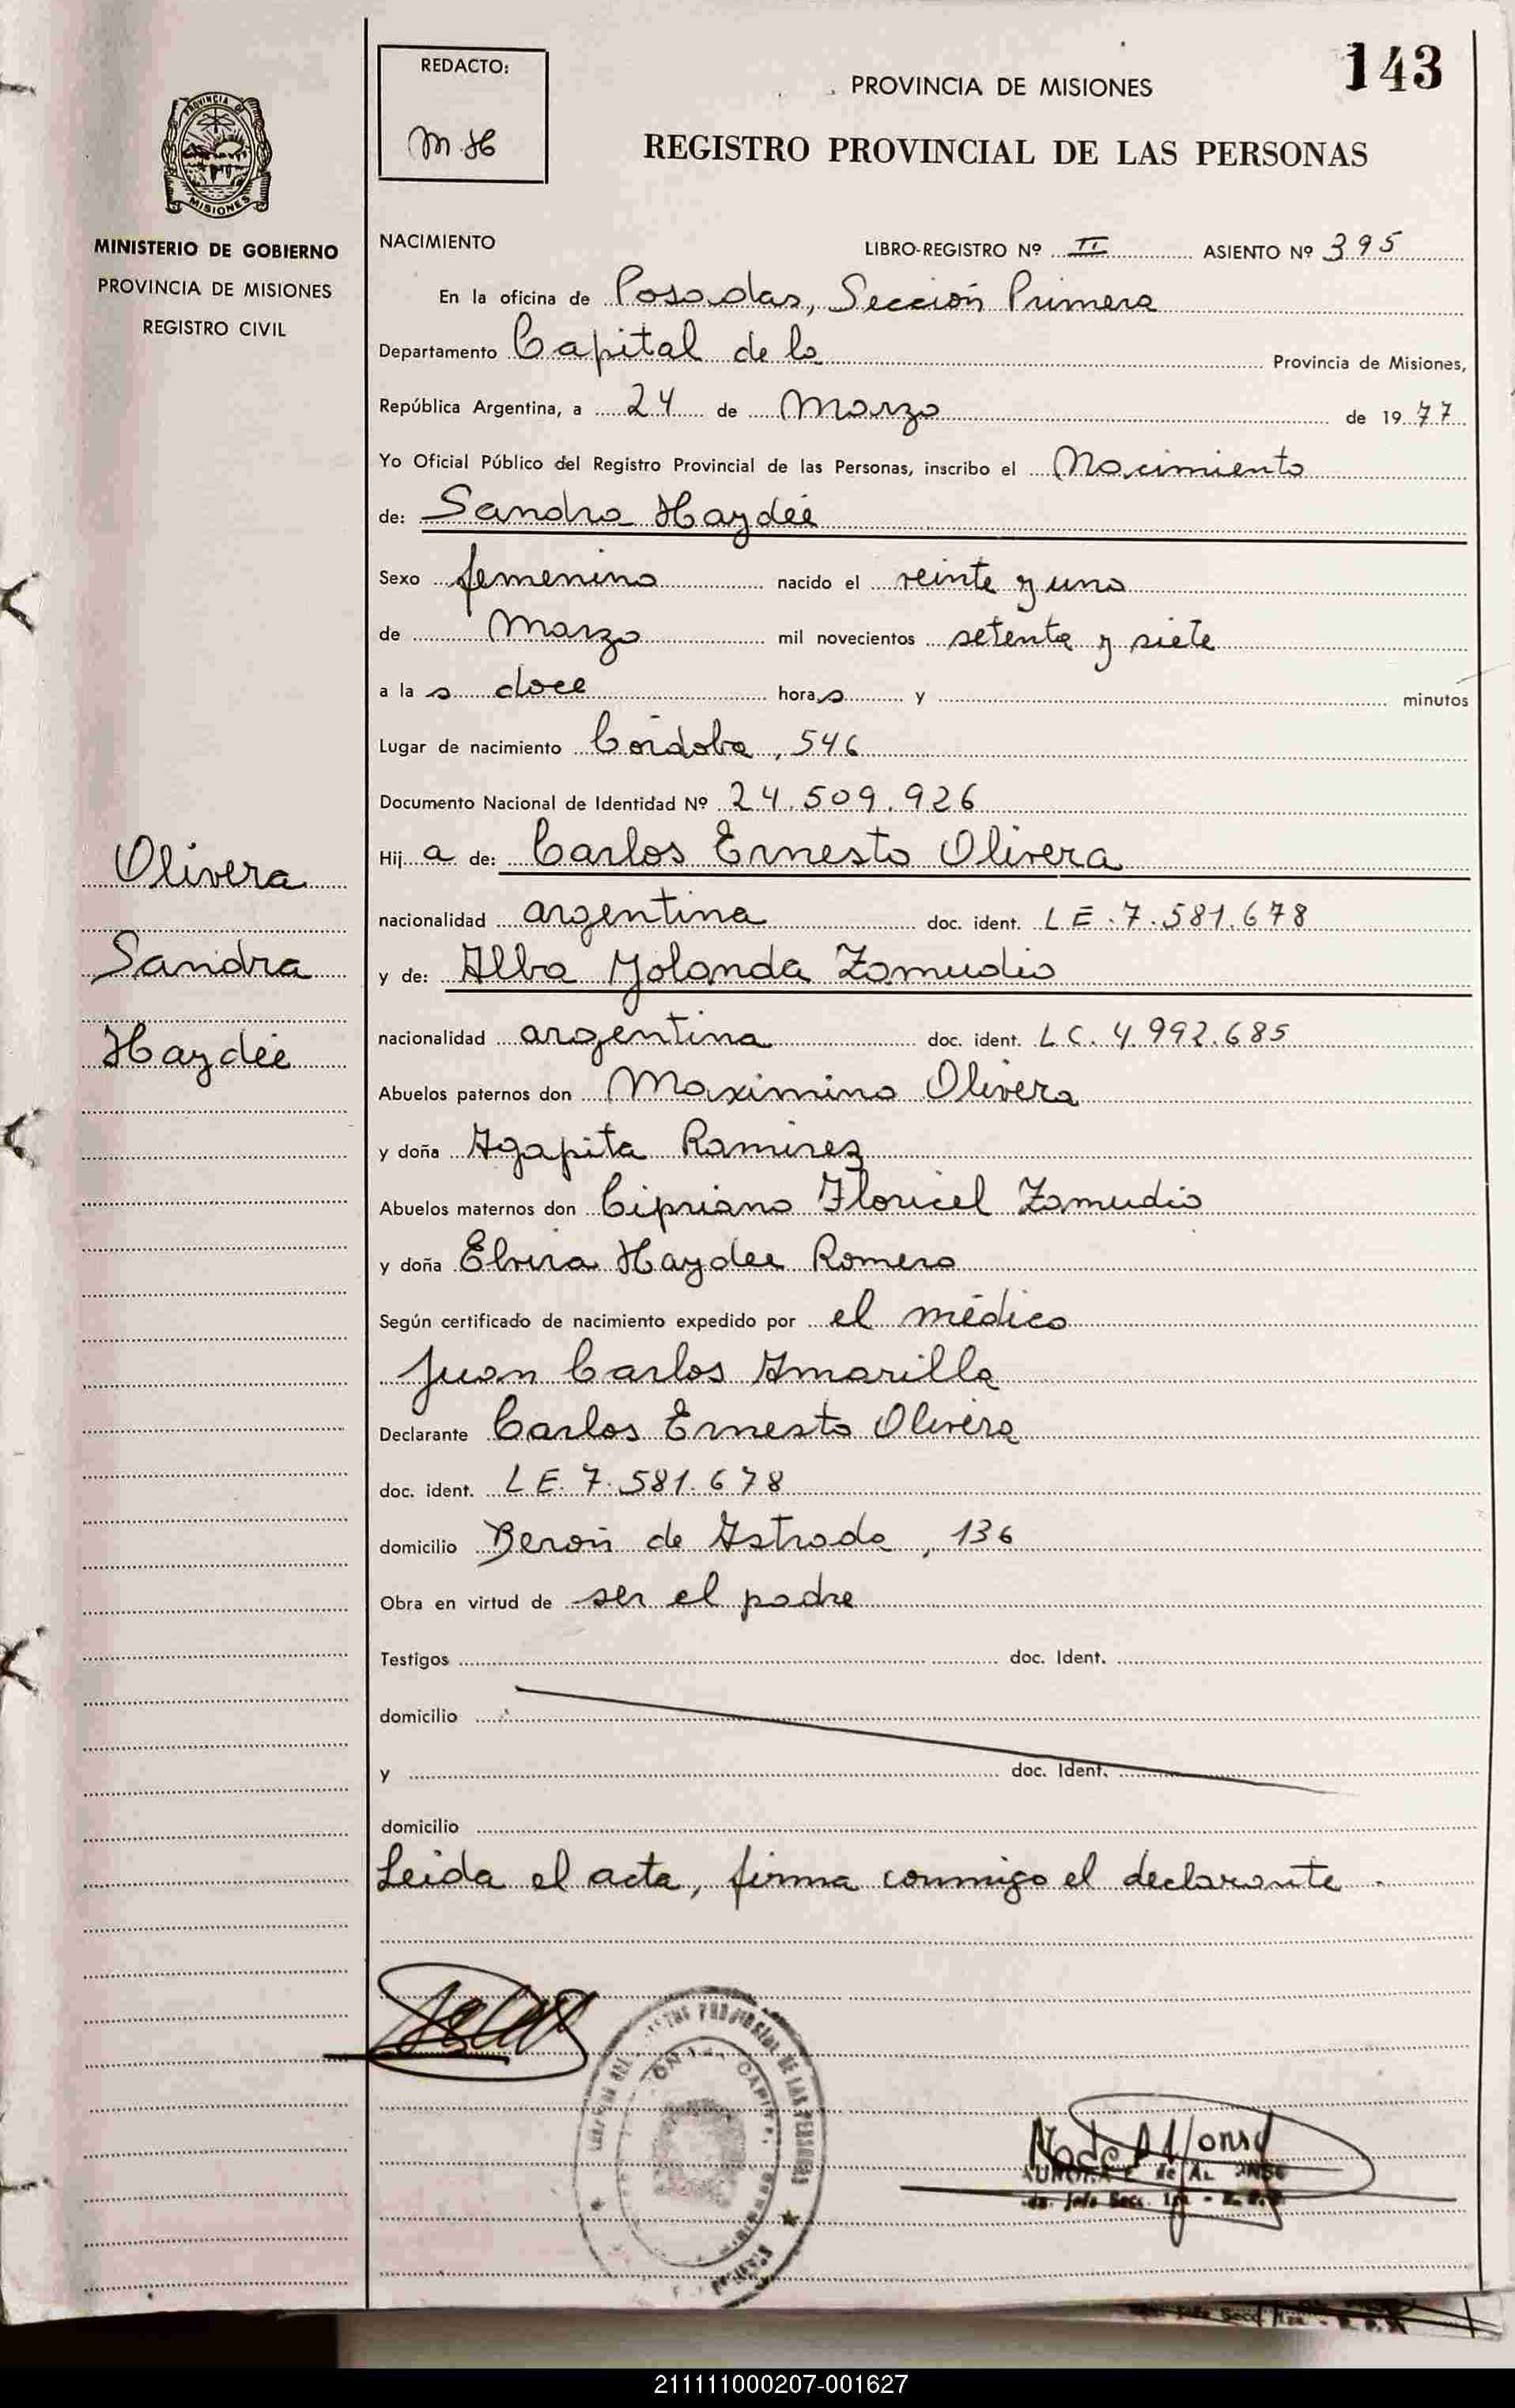 143
REDACTO:
M.H
PROVINCIA DE MISIONES
REGISTRO PROVINCIAL DE LAS PERSONAS
PROVINCIA DE
MISIONES
MINISTERIO DE GOBIERNO
PROVINCIA DE MISIONES
REGISTRO CIVIL
NACIMIENTO LIBRO-REGISTRO Nº II ASIENTO Nº 395
En la oficina de Posadas, Sección Primera
Departamento Capital de la Provincia de Misiones,
República Argentina, a 24 de Marzo de 1977
Yo Oficial Público del Registro Provincial de las Personas, inscribo el Nacimiento
de: Sandra Haydée
Sexo femenino nacido el veinte y uno
de Marzo mil novecientos setenta y siete
a la s doce hora s y minutos
Lugar de nacimiento Córdoba, 546
Documento Nacional de Identidad Nº 24.509.926
Hij a de: Carlos Ernesto Olivera
nacionalidad argentina doc. ident. LE.7.581.678
y de: Alba Yolanda Zamudio
nacionalidad argentina doc. ident. LC.4.992.685
Abuelos paternos don Maximino Olivera
y doña Agapita Ramirez
Abuelos maternos don Cipriano Floricel Zamudio
y doña Elvira Haydee Romero
Según certificado de nacimiento expedido por el médico
Juan Carlos Amarilla
Declarante Carlos Ernesto Olivera
doc. ident. LE.7.581.678
domicilio Berón de Astrada, 136
Obra en virtud de ser el padre
Testigos doc. Ident.
domicilio
y doc. Ident.
domicilio
Leida el acta, firma conmigo el declarante.
Olivera
Sandra
Haydée
211111000207-001627